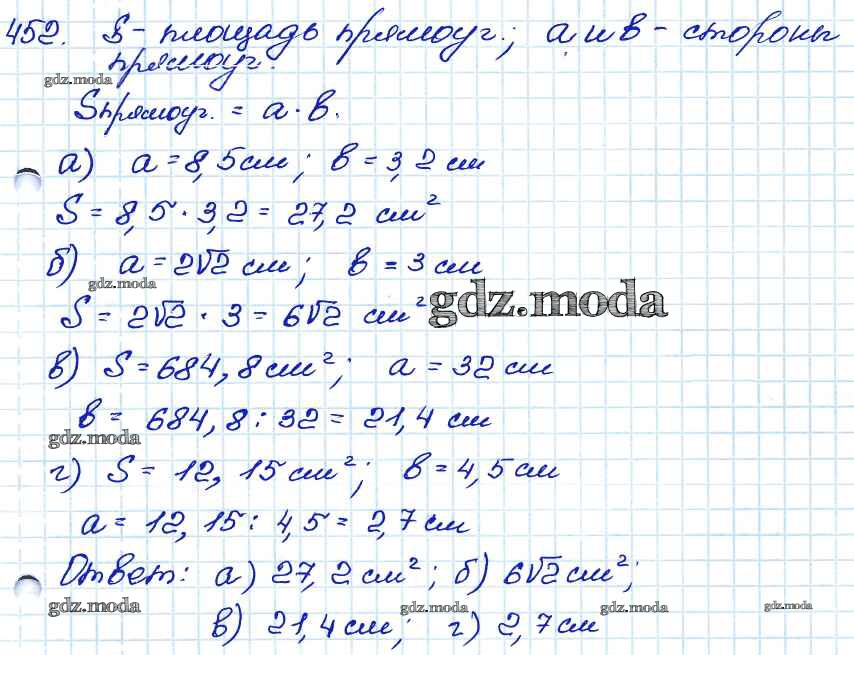 452. S - площадь прямоуг.; a и в - стороны
прямоуг.
gdz.moda
Sпрямоуг. = a · в.
а) a = 8,5 см; в = 3,2 см
S = 8,5 · 3,2 = 27,2 см²
б) a = 2√2 см; в = 3 см
gdz.moda
S = 2√2 · 3 = 6√2 см²
gdz.moda
в) S = 684,8 см²; a = 32 см
в = 684,8 : 32 = 21,4 см
gdz.moda
г) S = 12,15 см²; в = 4,5 см
a = 12,15 : 4,5 = 2,7 см
Ответ: а) 27,2 см²; б) 6√2 см²;
gdz.moda gdz.moda gdz.moda gdz.moda
в) 21,4 см; г) 2,7 см